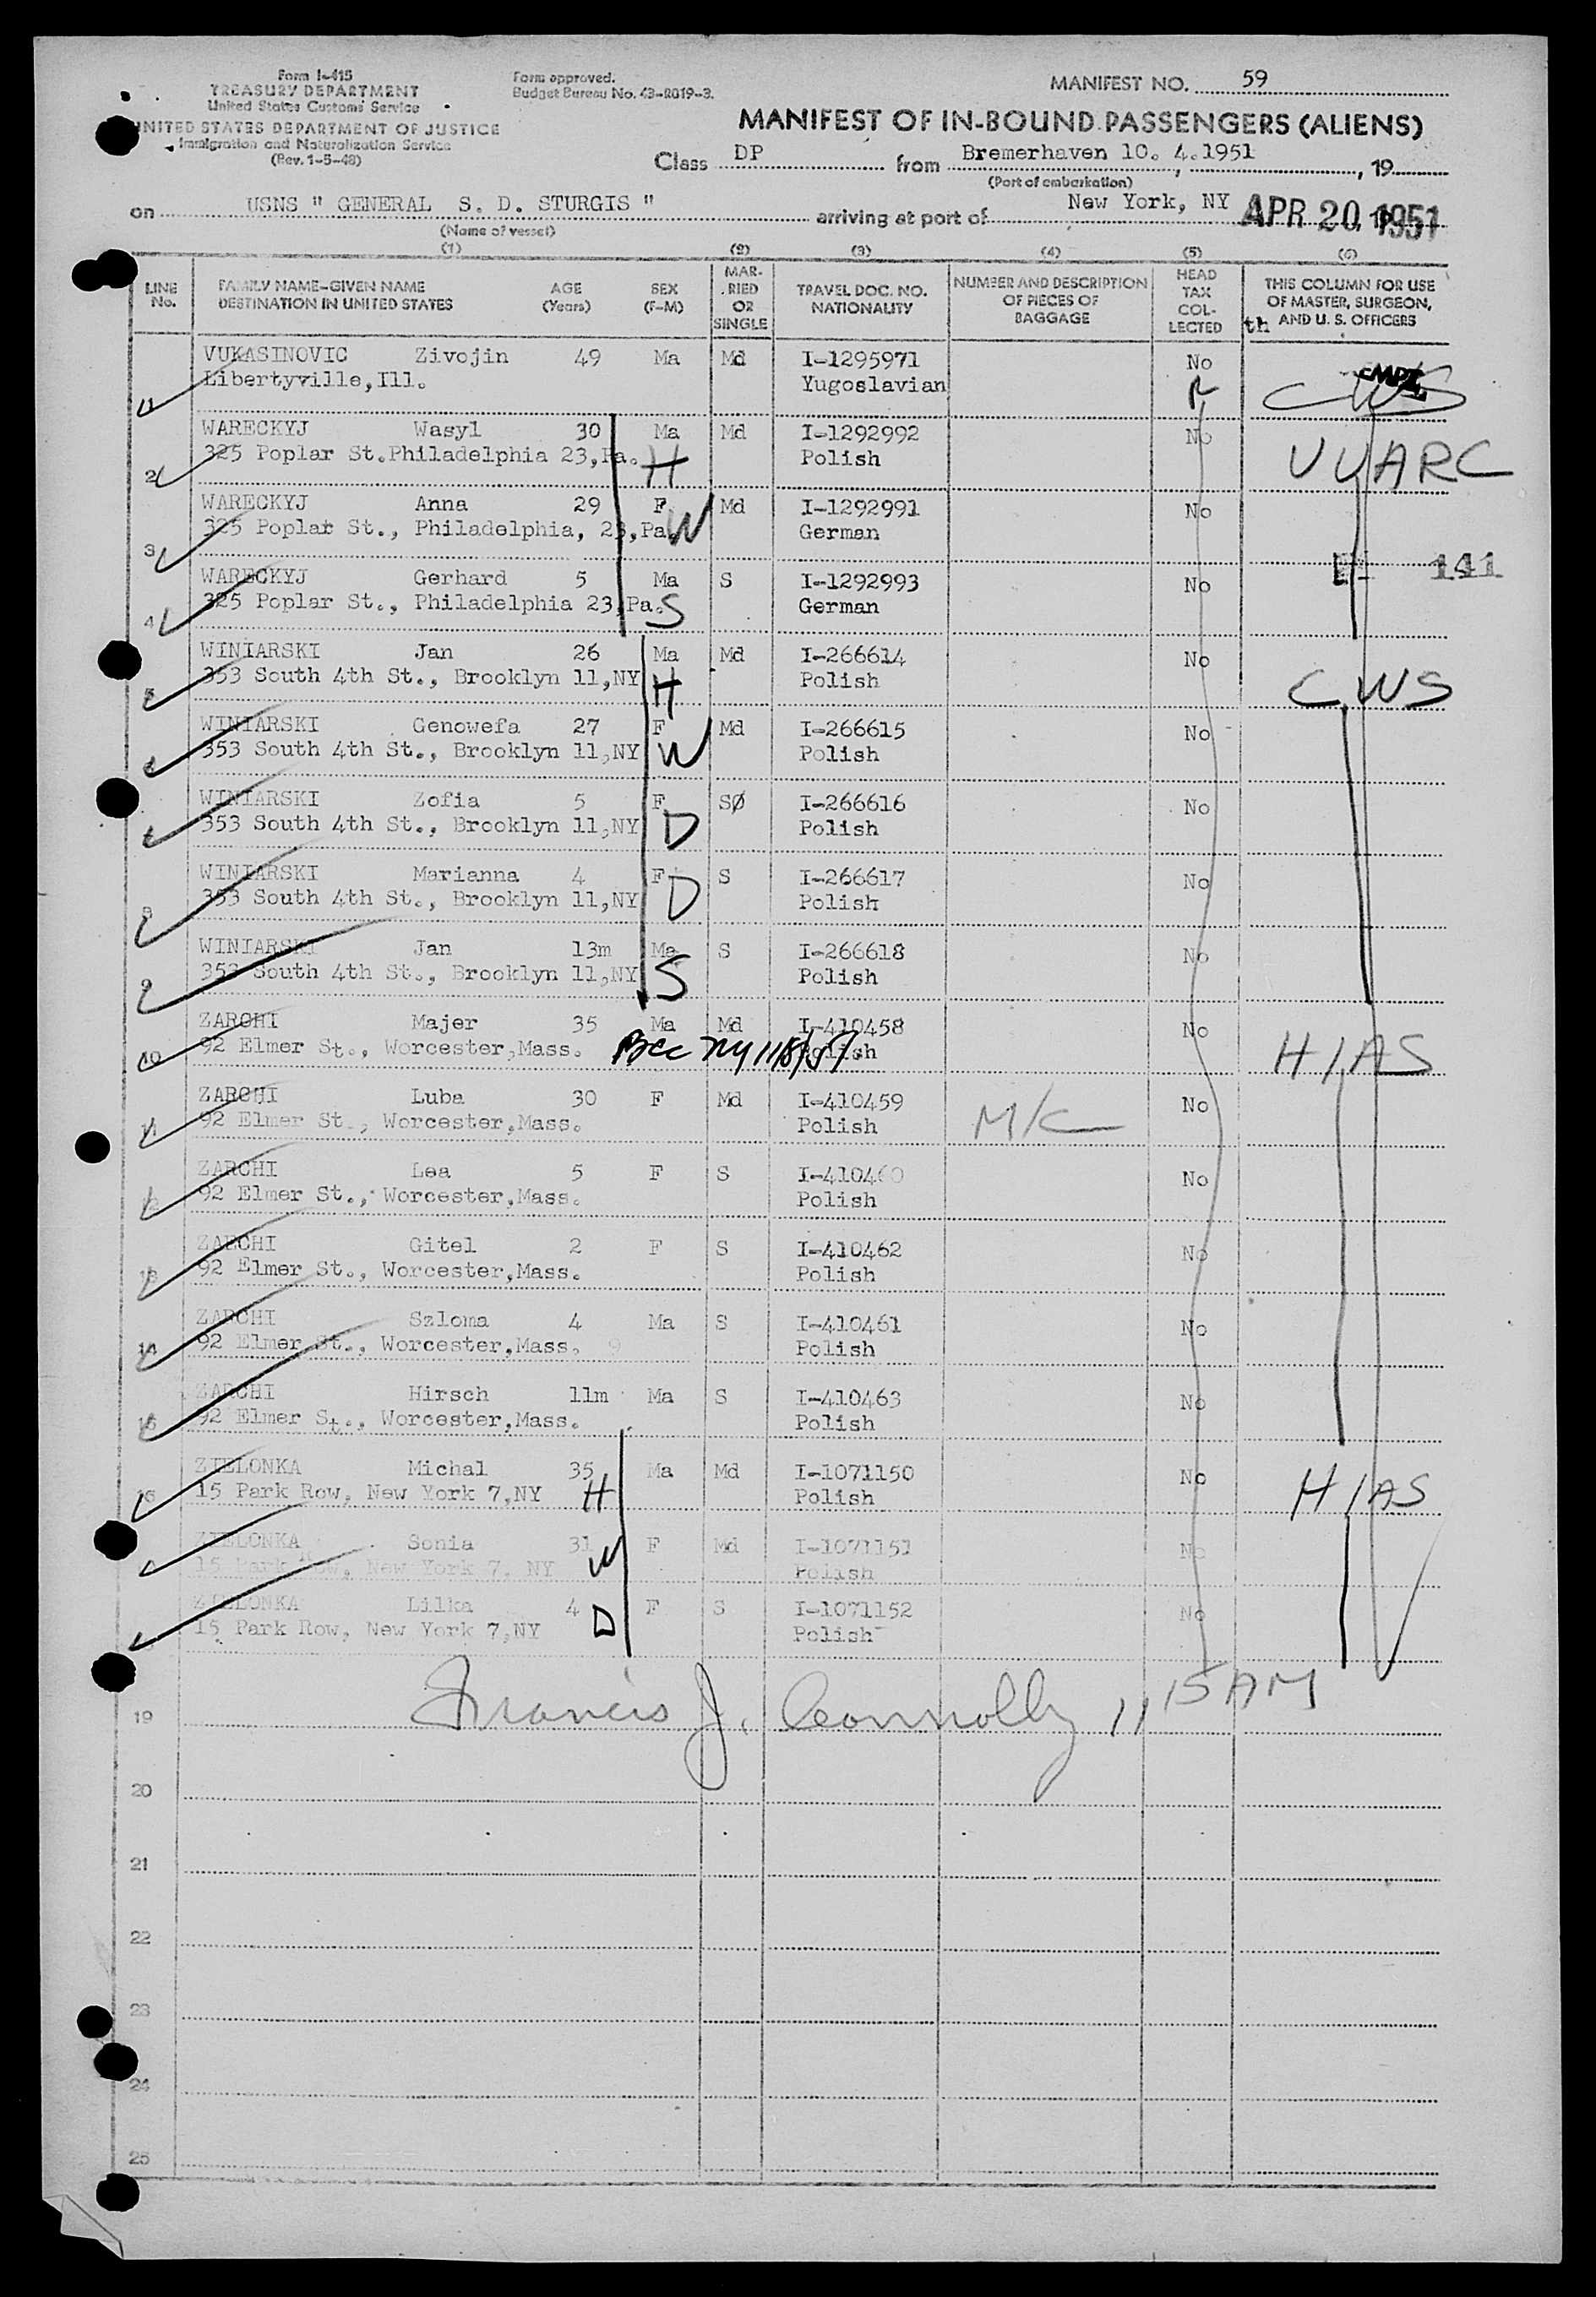 Form I-415
TREASURY DEPARTMENT
United States Customs Service
UNITED STATES DEPARTMENT OF JUSTICE
Immigration and Naturalization Service
(Rev. 1-5-48)
Form approved.
Budget Bureau No. 43-R019-3.
MANIFEST NO. 59
MANIFEST OF IN-BOUND PASSENGERS (ALIENS)
Class DP from Bremerhaven 10. 4.1951, 19
(Port of embarkation)
on USNS " GENERAL S. D. STURGIS " arriving at port of New York, NY APR 20, 1951
(Name of vessel)
(1) (2) (3) (4) (5) (6)
LINE No. FAMILY NAME-GIVEN NAME DESTINATION IN UNITED STATES AGE (Years) SEX (F-M) MARRIED OR SINGLE TRAVEL DOC. NO. NATIONALITY NUMBER AND DESCRIPTION OF PIECES OF BAGGAGE HEAD TAX COLLECTED THIS COLUMN FOR USE OF MASTER, SURGEON, AND U. S. OFFICERS
th
1 VUKASINOVIC Zivojin 49 Ma Md I-1295971 No
Libertyville,Ill. Yugoslavian CWS
2 WARECKYJ Wasyl 30 Ma Md I-1292992 No
325 Poplar St.Philadelphia 23,Pa. H Polish UUARC
3 WARECKYJ Anna 29 F Md I-1292991 No
325 Poplar St., Philadelphia, 23,Pa. W German
141
4 WARECKYJ Gerhard 5 Ma S I-1292993 No
325 Poplar St., Philadelphia 23,Pa. S German
5 WINIARSKI Jan 26 Ma Md I-266614 No
353 South 4th St., Brooklyn 11,NY H Polish CWS
6 WINIARSKI Genowefa 27 F Md I-266615 No
353 South 4th St., Brooklyn 11,NY W Polish
7 WINIARSKI Zofia 5 F SØ I-266616 No
353 South 4th St., Brooklyn 11,NY D Polish
8 WINIARSKI Marianna 4 F S I-266617 No
353 South 4th St., Brooklyn 11,NY D Polish
9 WINIARSKI Jan 13m Ma S I-266618 No
353 South 4th St., Brooklyn 11,NY S Polish
10 ZARCHI Majer 35 Ma Md I-410458 No
92 Elmer St., Worcester,Mass. Polish HIAS
11 ZARCHI Luba 30 F Md I-410459 No
92 Elmer St., Worcester,Mass. Polish M/C
12 ZARCHI Lea 5 F S I-410460 No
92 Elmer St., Worcester,Mass. Polish
13 ZARCHI Gitel 2 F S I-410462 No
92 Elmer St., Worcester,Mass. Polish
14 ZARCHI Szloma 4 Ma S I-410461 No
92 Elmer St., Worcester,Mass. 9 Polish
15 ZARCHI Hirsch 11m Ma S I-410463 No
92 Elmer St., Worcester,Mass. Polish
16 ZIELONKA Michal 35 Ma Md I-1071150 No
15 Park Row, New York 7,NY H Polish HIAS
ZIELONKA Sonia 31 F Md I-1071151 No
15 Park Row, New York 7, NY W Polish
ZIELONKA Lilka 4 F S I-1071152 No
15 Park Row, New York 7,NY D Polish
Francis J. Connolly 11 15 AM
19
20
21
22
23
24
25